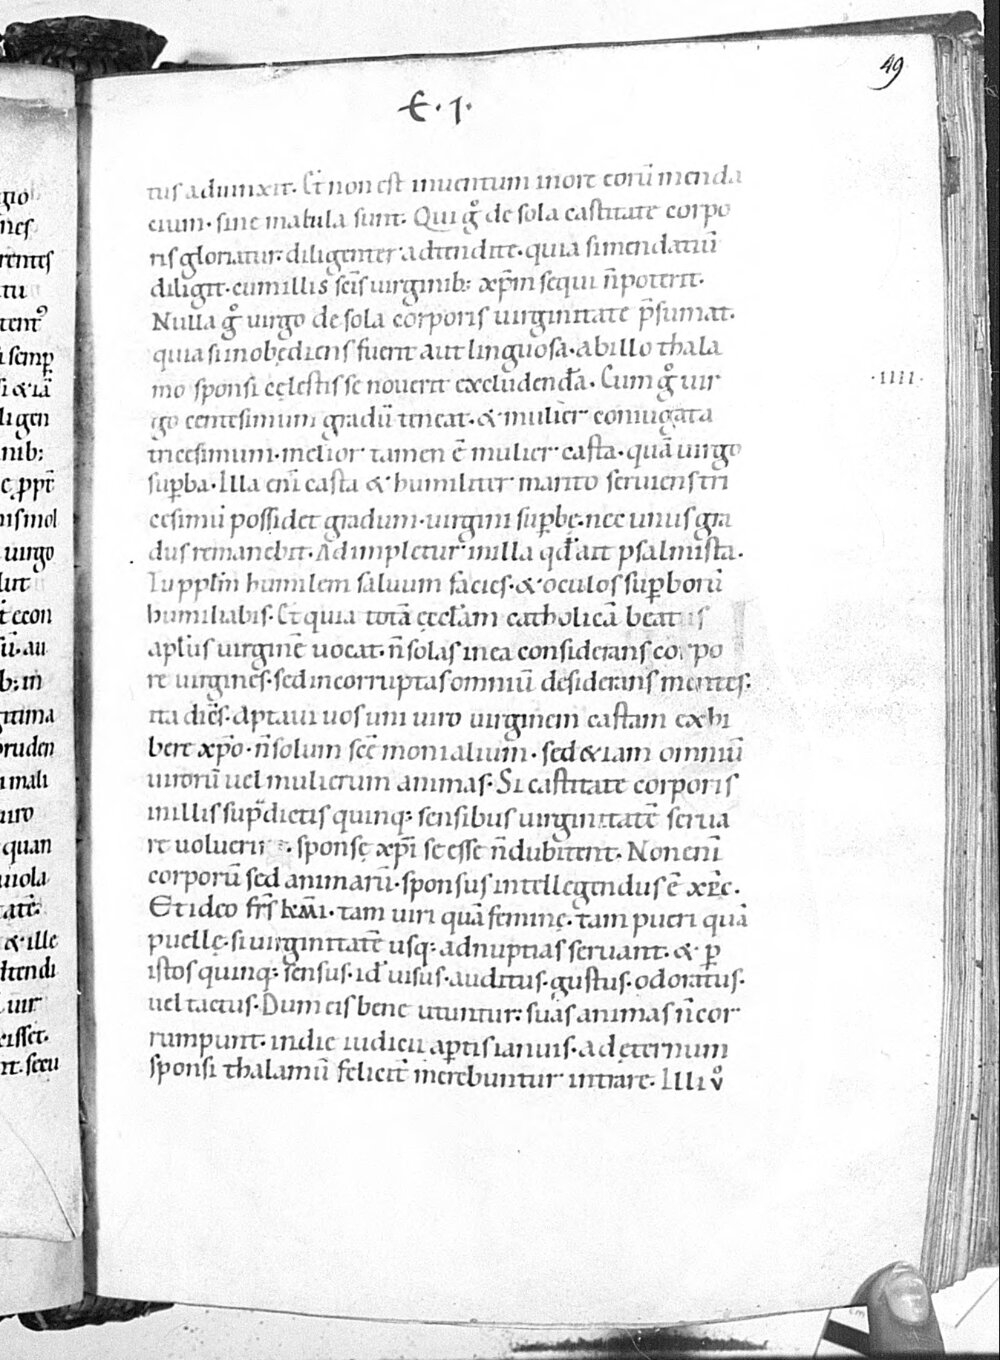 49
E·I·
tus adiunxit. Et non est inuentum inore corū menda
cium· sine macula sunt. Qui gͦ de sola castitate corpo
ris gloriatur· diligenter adtendite· quia simendatiū
diligit· cumillis sc̄is uirginib: xp̄m sequi n̄poterit.
Nulla gͦ uirgo de sola corporis uirginitate p̄sumat·
quia siinobędiens fuerit aut linguosa· abillo thala
mo sponsi cęlestis se nouerit excludendā. Cum gͦ uir
go centesimum gradū teneat· & mulier coniugata
tricesimum· melior tamen ē mulier casta· quā uirgo
suꝑba· Illa eni᷑ casta & humiliter marito seruiens tri
cesimū possidet gradum· uirgini suꝑbę· nec unus gra
dus remanebit. Adimpletur inilla qđ ait psalmista·
Tu ppłm humilem saluum facies· & oculos suꝑborū
humiliabis. Et quia totā ęccłam catholicā beatus
apl̄us uirginē uocat· n̄ solas inea considerans corpo
re uirgines· sed incorruptas omniū desiderans mentes:
ita dic̄s· Aptaui uos uni uiro uirginem castam exhi
bere xp̄o· n̄ solum sc̄e monialium· sed & iam omniū
uirorū uel mulierum animas· Si castitate corporis
inillis sup̄dictis quinq: sensibus uirginitatē serua
re uoluerit· sponsę xp̄i se esse n̄ dubitent. Non eni᷑
corporū sed animarū· sponsus intellegendus ē xp̄c·
Et ideo fr̄s km̄i· tam uiri quā feminę· tam pueri quā
puellę· si uirginitatē usq: adnuptias seruant· & ꝑ
istos quinq: sensus· id ̄ uisus· auditus· gustus· odoratus·
uel tactus· Dum eis bene utuntur: suas animas n̄ cor
rumpunt· indie iudicii aꝑtis ianuis· ad ęternum
sponsi thalamū felicit̄ merebuntur intrare· Illi ͦv
·IIII·